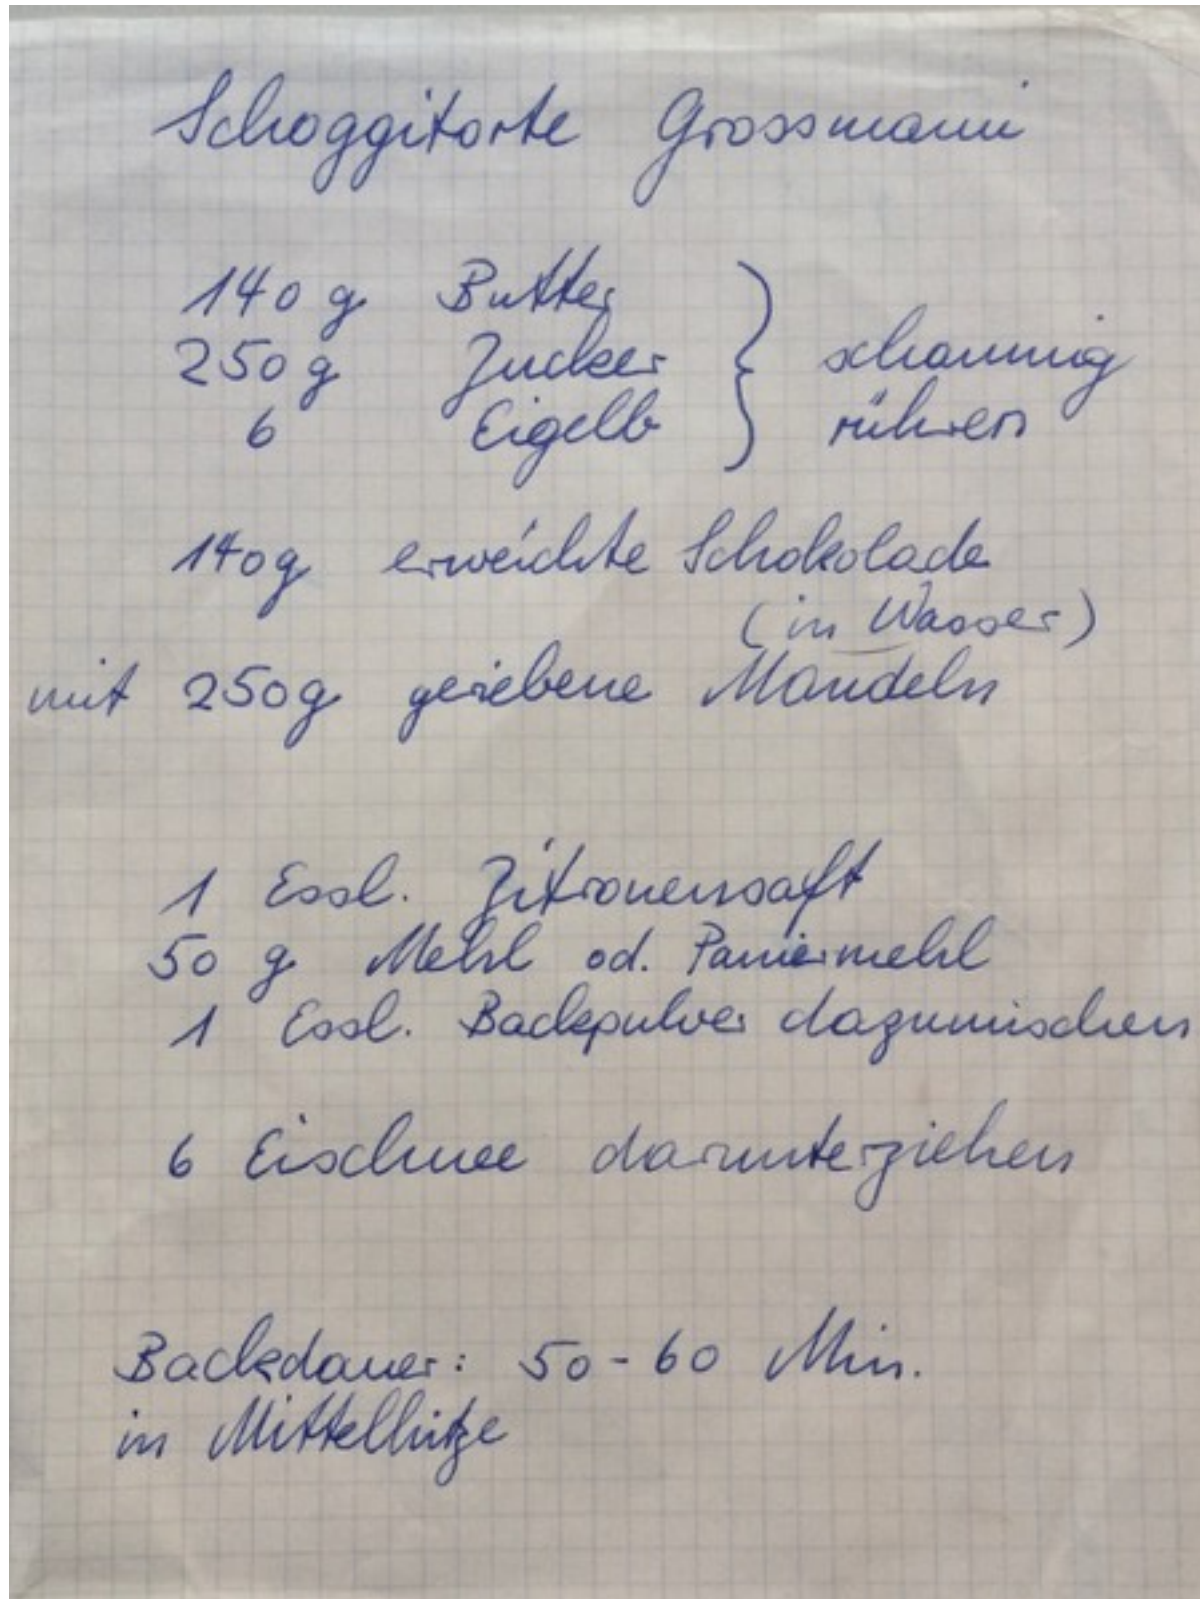 Schoggitorte Grossmann
140 g Butter
250 g Zucker } schaumig
6 Eigelb rühren
140g erweichte Schokolade
(in Wasser)
mit 250g geriebene Mandeln
1 Essl. Zitronensaft
50 g Mehl od. Paniermehl
1 Essl. Backpulver dazumischen
6 Eischnee darunterziehen
Backdauer: 50-60 Min.
in Mittelhitze